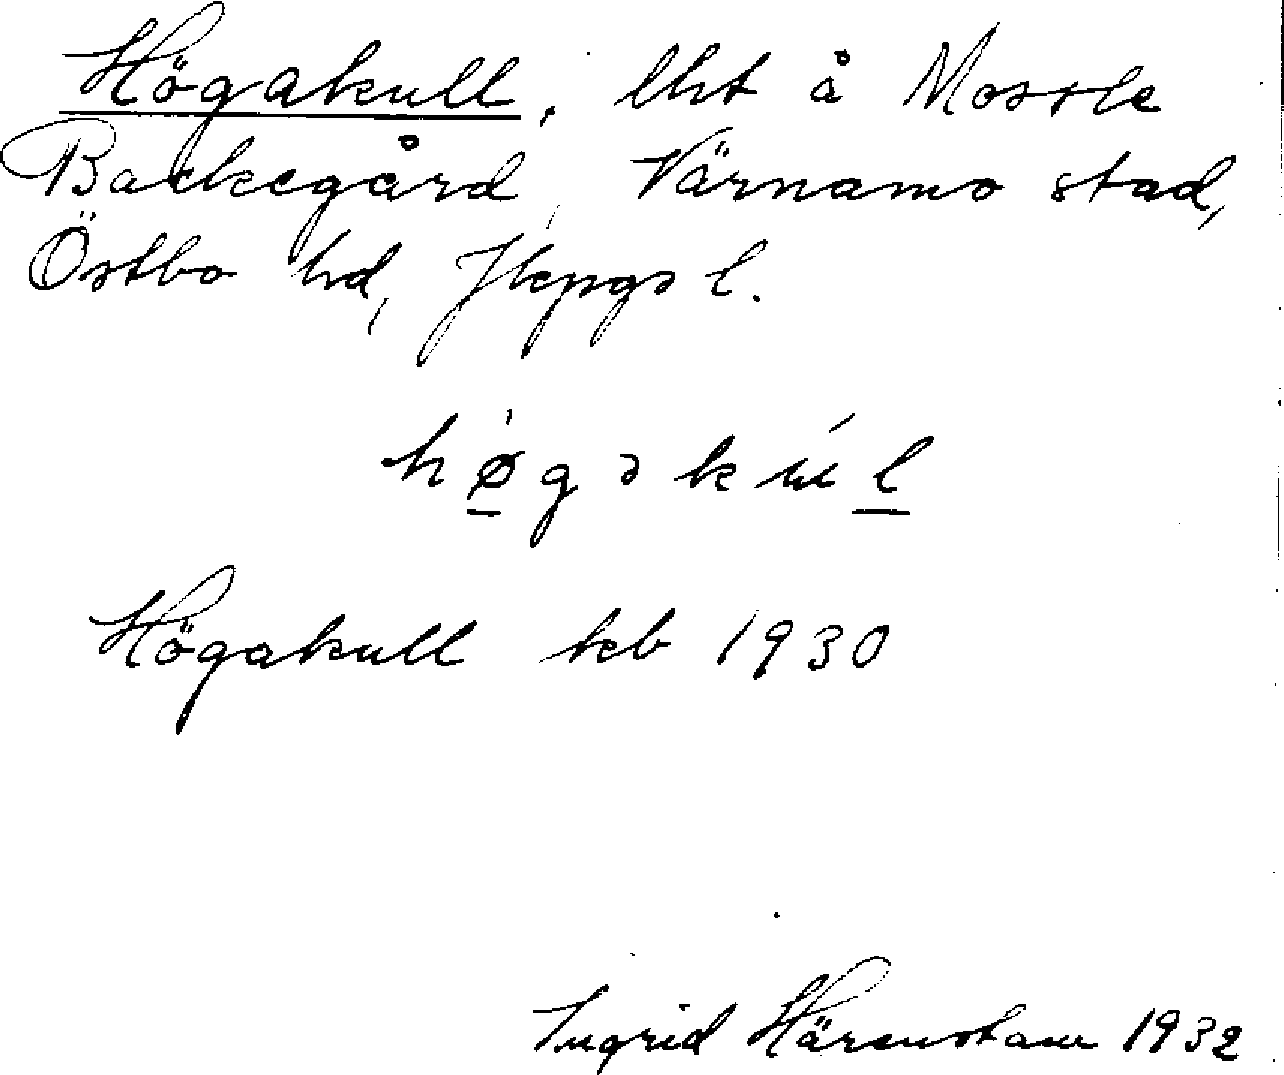 Högakull, lht å Mossle
Backegård, Värnamo stad,
Östbo hd, Jkpgs l.
hø̱̀gəkúḻ
Högakull kb 1930
Ingrid Härenstam 1932